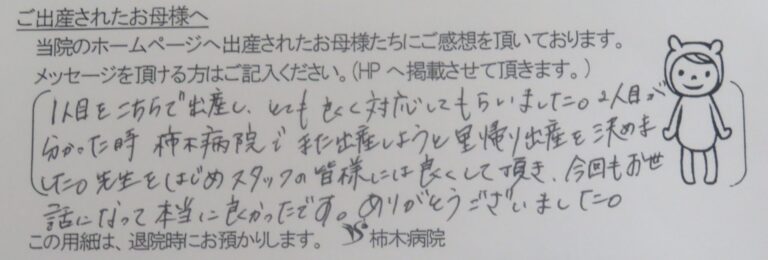 ご出産されたお母様へ
当院のホームページへ出産されたお母様たちにご感想を頂いております。
メッセージを頂ける方はご記入ください。(HPへ掲載させて頂きます。)
1人目をこちらで出産し、とても良く対応してもらいました。2人目が
分かった時 柿木病院でまた出産しようと里帰り出産を決めま
した。先生をはじめスタッフの皆様には良くして頂き、今回もお世
話になって本当に良かったです。ありがとうございました。
この用紙は、退院時にお預かりします。 柿木病院